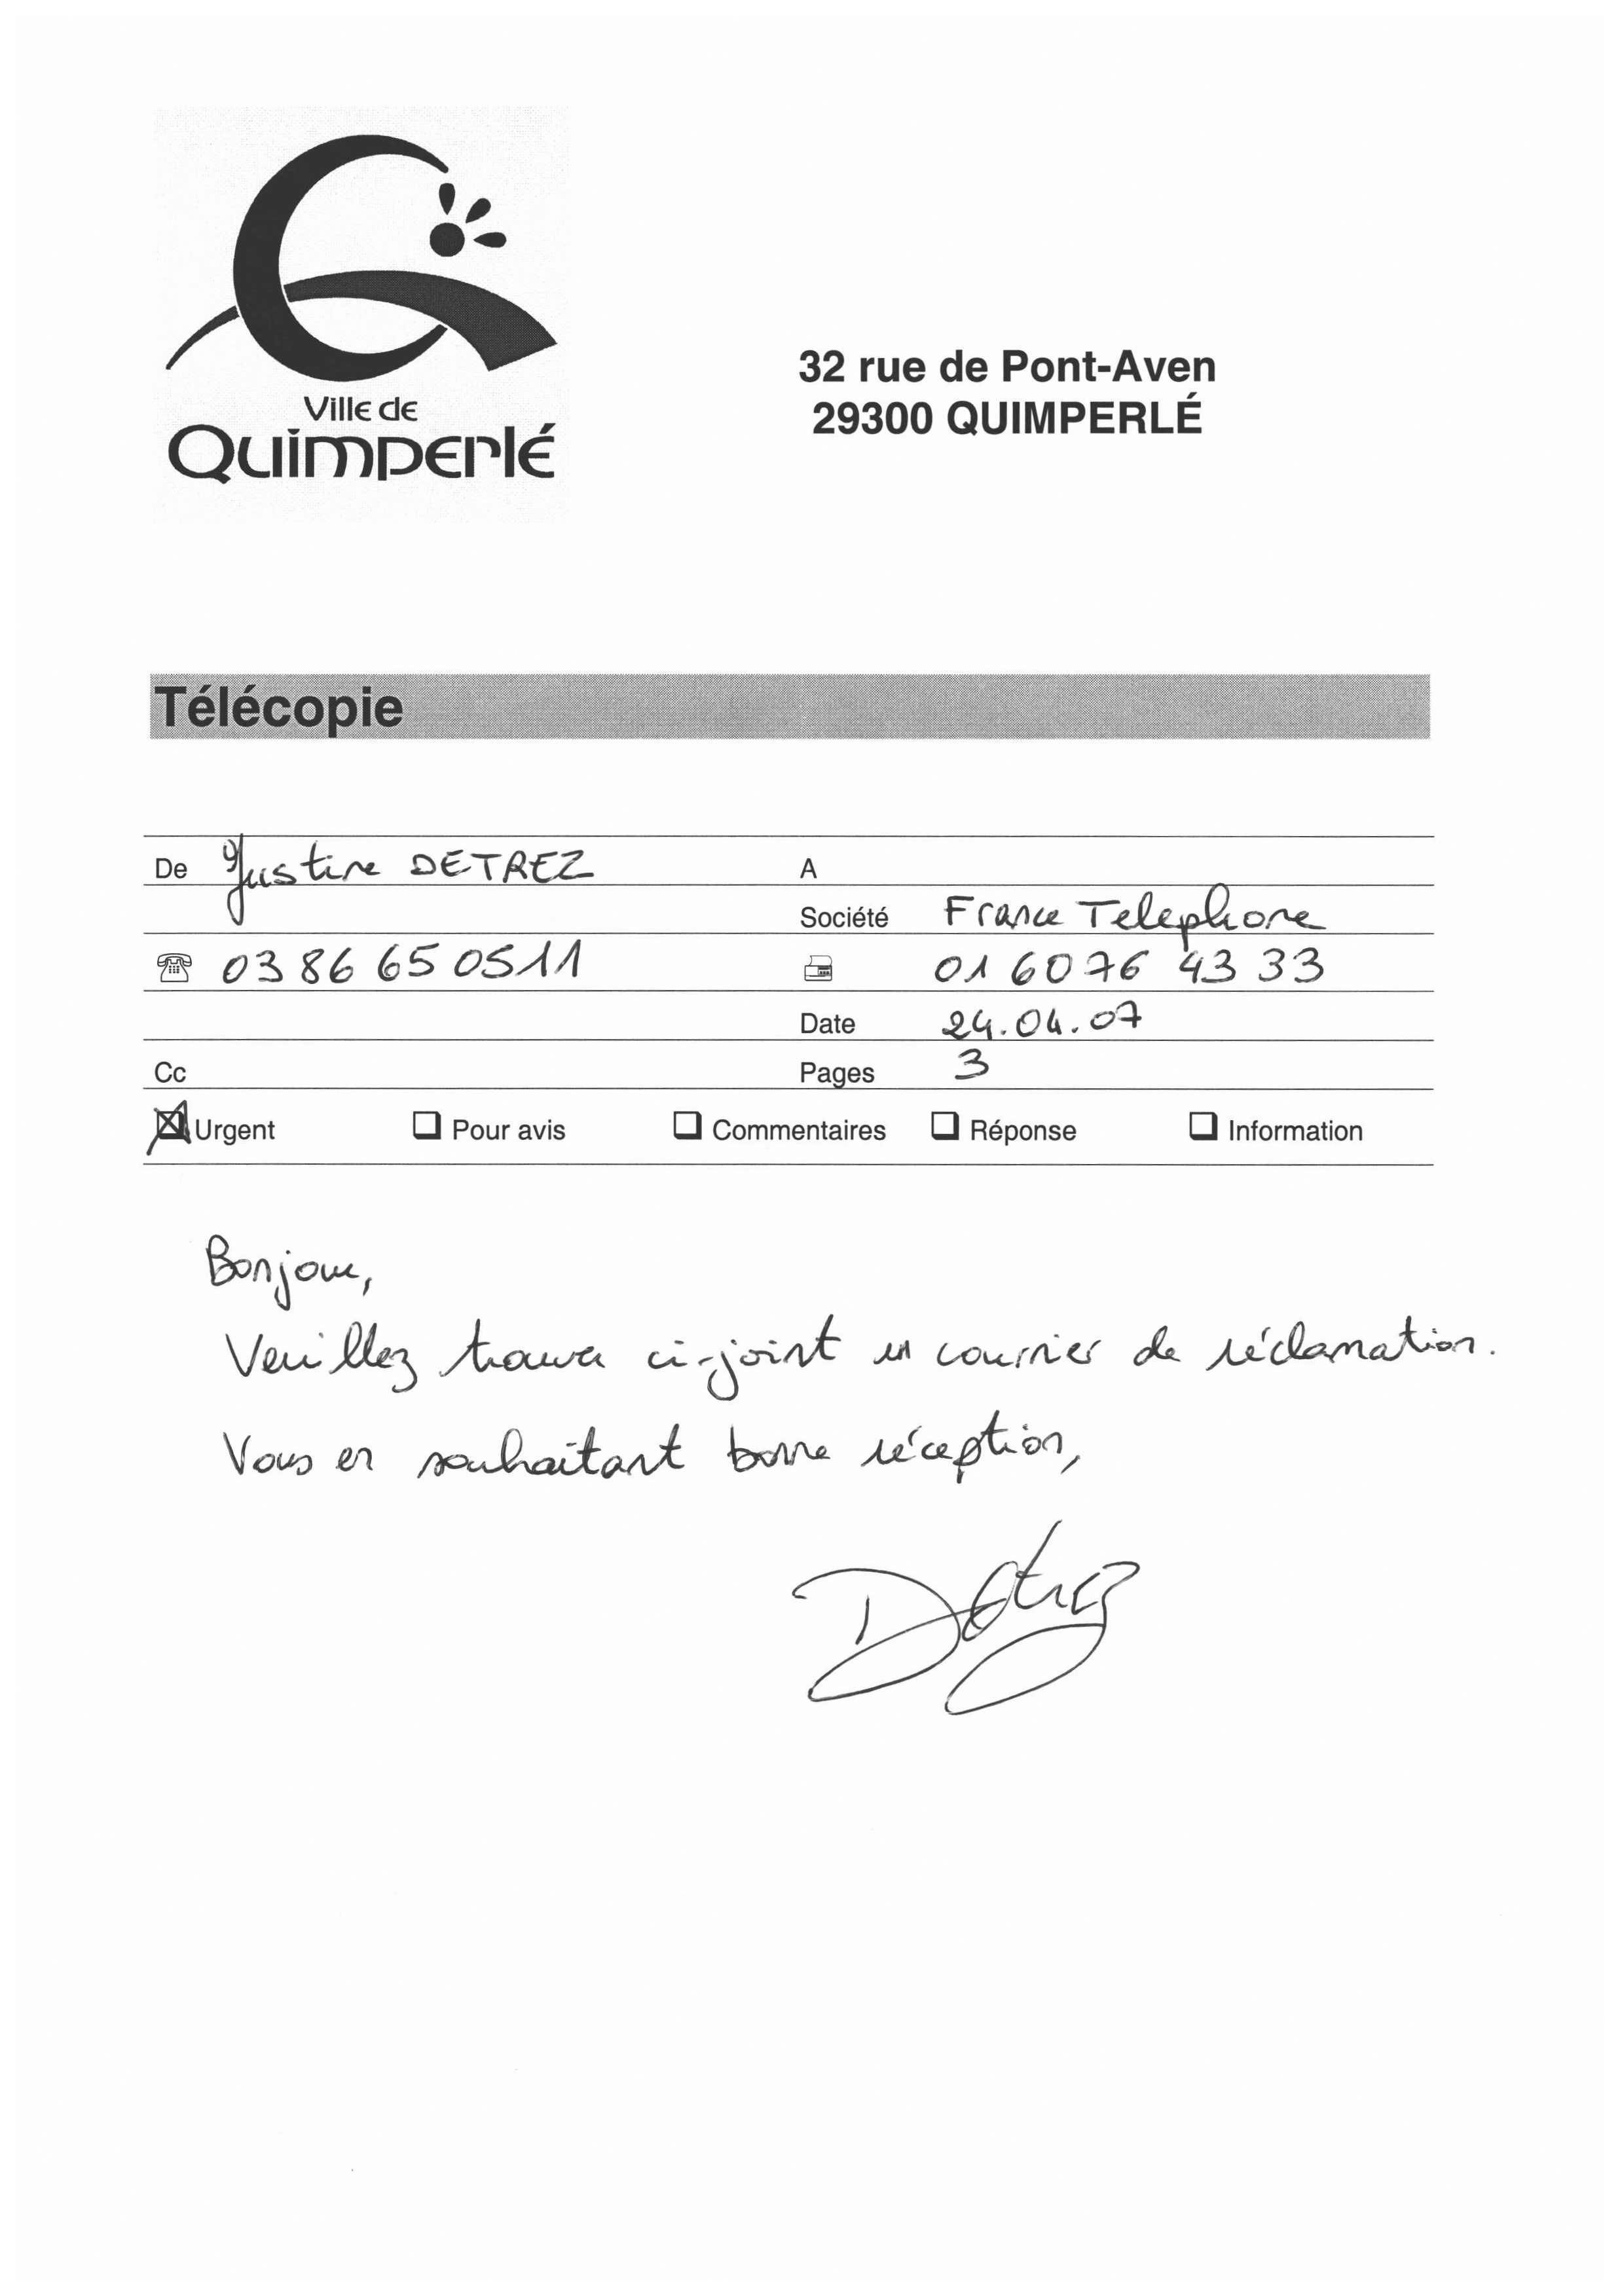 Ville de
Quimperlé
32 rue de Pont-Aven
29300 QUIMPERLÉ
Télécopie
De Justine DETREZ A
Société France Telephone
03 86 65 05 11 01 60 76 43 33
Date 24.04.07
Cc Pages 3
Urgent Pour avis Commentaires Réponse Information
Bonjour,
Veuillez trouver ci-joint un courrier de réclamation.
Vous en souhaitant bonne réception,
Detrez